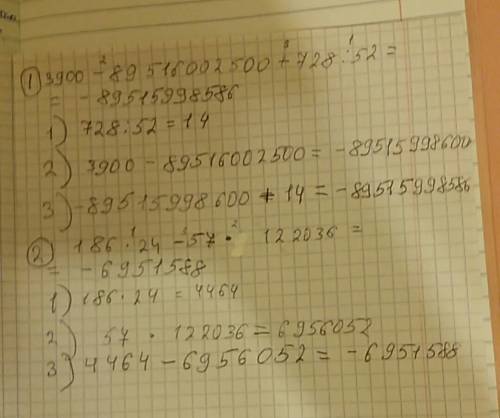 ① 3900 -² 89516002500 +³ 728 :¹ 52 =
= - 89515998586
1) 728 : 52 = 14
2) 3900 - 89516002500 = -89515998600
3) -89515998600 + 14 = -89515998586
② 186 ·¹ 24 -³ 57 ·² 122036 =
= - 6951588
1) 186 · 24 = 4464
2) 57 · 122036 = 6956052
3) 4464 - 6956052 = -6951588